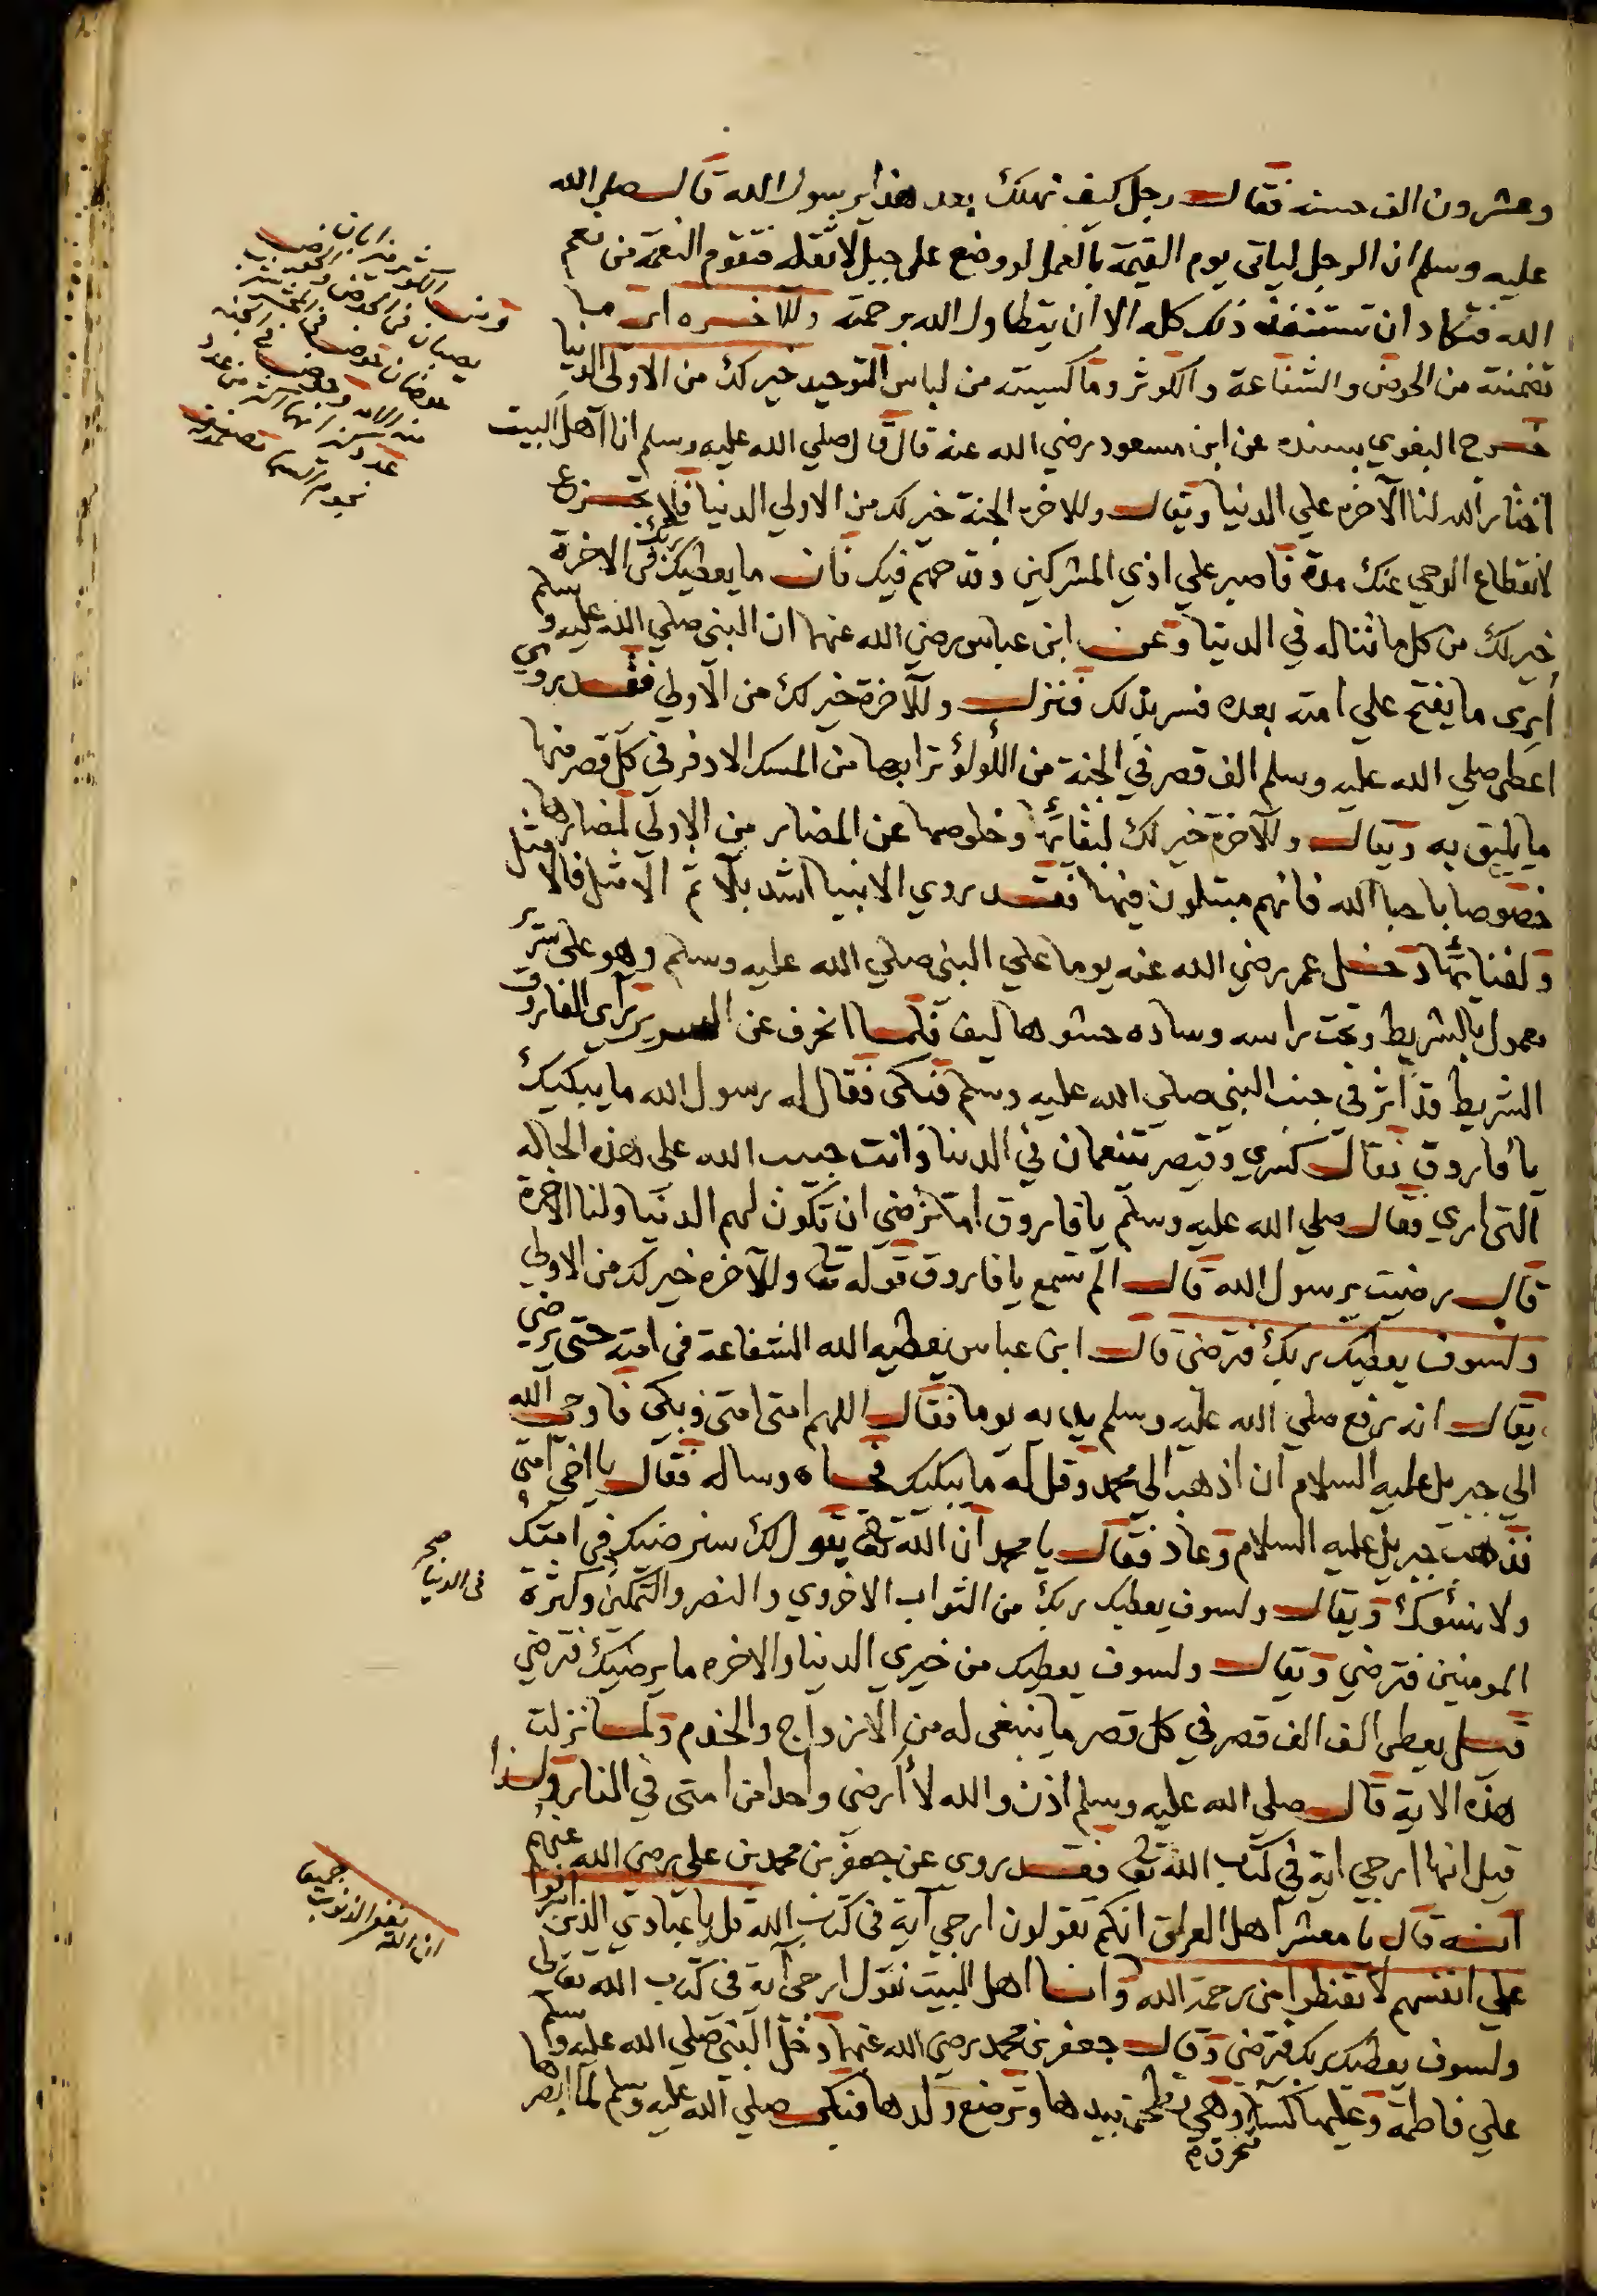 وعشرون الف حسنه فقال رجل كيف نهلك بعد هذا يرسول الله قال صلي الله
عليه وسلم ان الرجل لياتي يوم القيمة بالعمل لو وضع علي جبل لاثقله فتقوم النعمة من نعم
الله فتكاد ان تستنفد ذلك كله الا ان يتطاول الله برحمته وللاخره اي ما
تضمنته من الحوض والشفاعة والكوثر وما كسيته من لباس التوحيد خير لك من الاولي الدنيا
خرج البغوي بسنده عن ابن مسعود رضي الله عنه قال قال صلي الله عليه وسلم انا اهل البيت
اختار الله لنا الآخره علي الدنيا ويقال وللاخره الجنة خير لك من الاولي الدنيا فلا تجزع
لانقطاع الوحي عنك مدة فاصبر علي اذي المشركين وقدحهم فيك فان ما يعطيك ربك في الاخرة
خير لك من كل ما تناله في الدنيا وعن ابن عباس رضي الله عنهما ان النبي صلي الله عليه وسلم
اُرِي ما يفتح علي امته بعده فسر بذلك فنزل وللآخرة خير لك من الاولي فقد روي
اعطي صلي الله عليه وسلم الف قصر في الجنة من اللؤلؤ ترابها من المسك الادفر في كل قصر منها
ما يليق به ويقال وللآخرة خير لك لبقائها وخلوصها عن المضار من الاولي لمضارها
خصوصا باحبا الله فانهم مبتلون فيها فقد روي الانبيا اشد بلآ ثم الامثل فالامثل
ولفنائها دخل عمر رضي الله عنه يوما علي النبي صلي الله عليه وسلم وهو علي سرير
معمول بالشريط وتحت راسه وساده حشوها ليف فلما انحرف عن السرير رآي الفاروق
الشريط قد اثر في جنب النبي صلي الله عليه وسلم فبكي فقال له رسول الله ما يبكيك
يا فاروق فقال كسري وقيصر يتنعمان في الدنيا وانت حبيب الله علي هذه الحاله
التي اري فقال صلي الله عليه وسلم يا فاروق اما ترضي ان تكون لهم الدنيا ولنا الاخرة
قال رضيت يرسول الله قال الم تسمع يا فاروق قوله تعا وللآخره خير لك من الاولي
ولسوف يعطيك ربك فترضي قال ابن عباس يعطيه الله الشفاعة في امته حتي يرضي
يقال انه رفع صلي الله عليه وسلم يديه يوما فقال اللهم امتي امتي وبكي فاوحي الله
الي جبريل عليه السلام ان اذهب الي محمد وقل له ما يبكيك فجاه وساله فقال يا اخي امتي
فذهب جبريل عليه السلام وعاد فقال يا محمد ان الله تعا يقول لك سنرضيك في امتك
ولا نسؤك ويقال ولسوف يعطيك ربك من الثواب الاخروي والنصر والتمكين وكثرة
في الدنيا صح
المومنين فترضي ويقال ولسوف يعطيك من خيري الدنيا والاخره ما يرضيك فترضي
قيل يعطي الف الف قصر في كل قصر ما ينبغي له من الازواج والخدم ولما نزلت
هذه الاية قال صلي الله عليه وسلم اذن والله لا أرضي واحد من امتي في النار ولذا
قيل انها ارجي اية في كتاب الله تعا فقد روي عن جعفر بن محمد بن علي رضي الله عنهم
انه قال يا معشر اهل العراق انكم تقولون ارجي آية في كتاب الله قل يا عبادي الذين اسرفوا
علي انفسهم لا تقنطوا من رحمة الله وانا اهل البيت نقول ارجي آية في كتاب الله تعالي
ان الله يغفر الذنوب جميعا
ولسوف يعطيك ربك فترضي وقال جعفر بن محمد رضي الله عنهما دخل النبي صلي الله عليه وسلم
علي فاطمة وعليها كسا وهي تطحن بيدها وترضع ولدها فبكي صلي الله عليه وسلم لما ابصرها